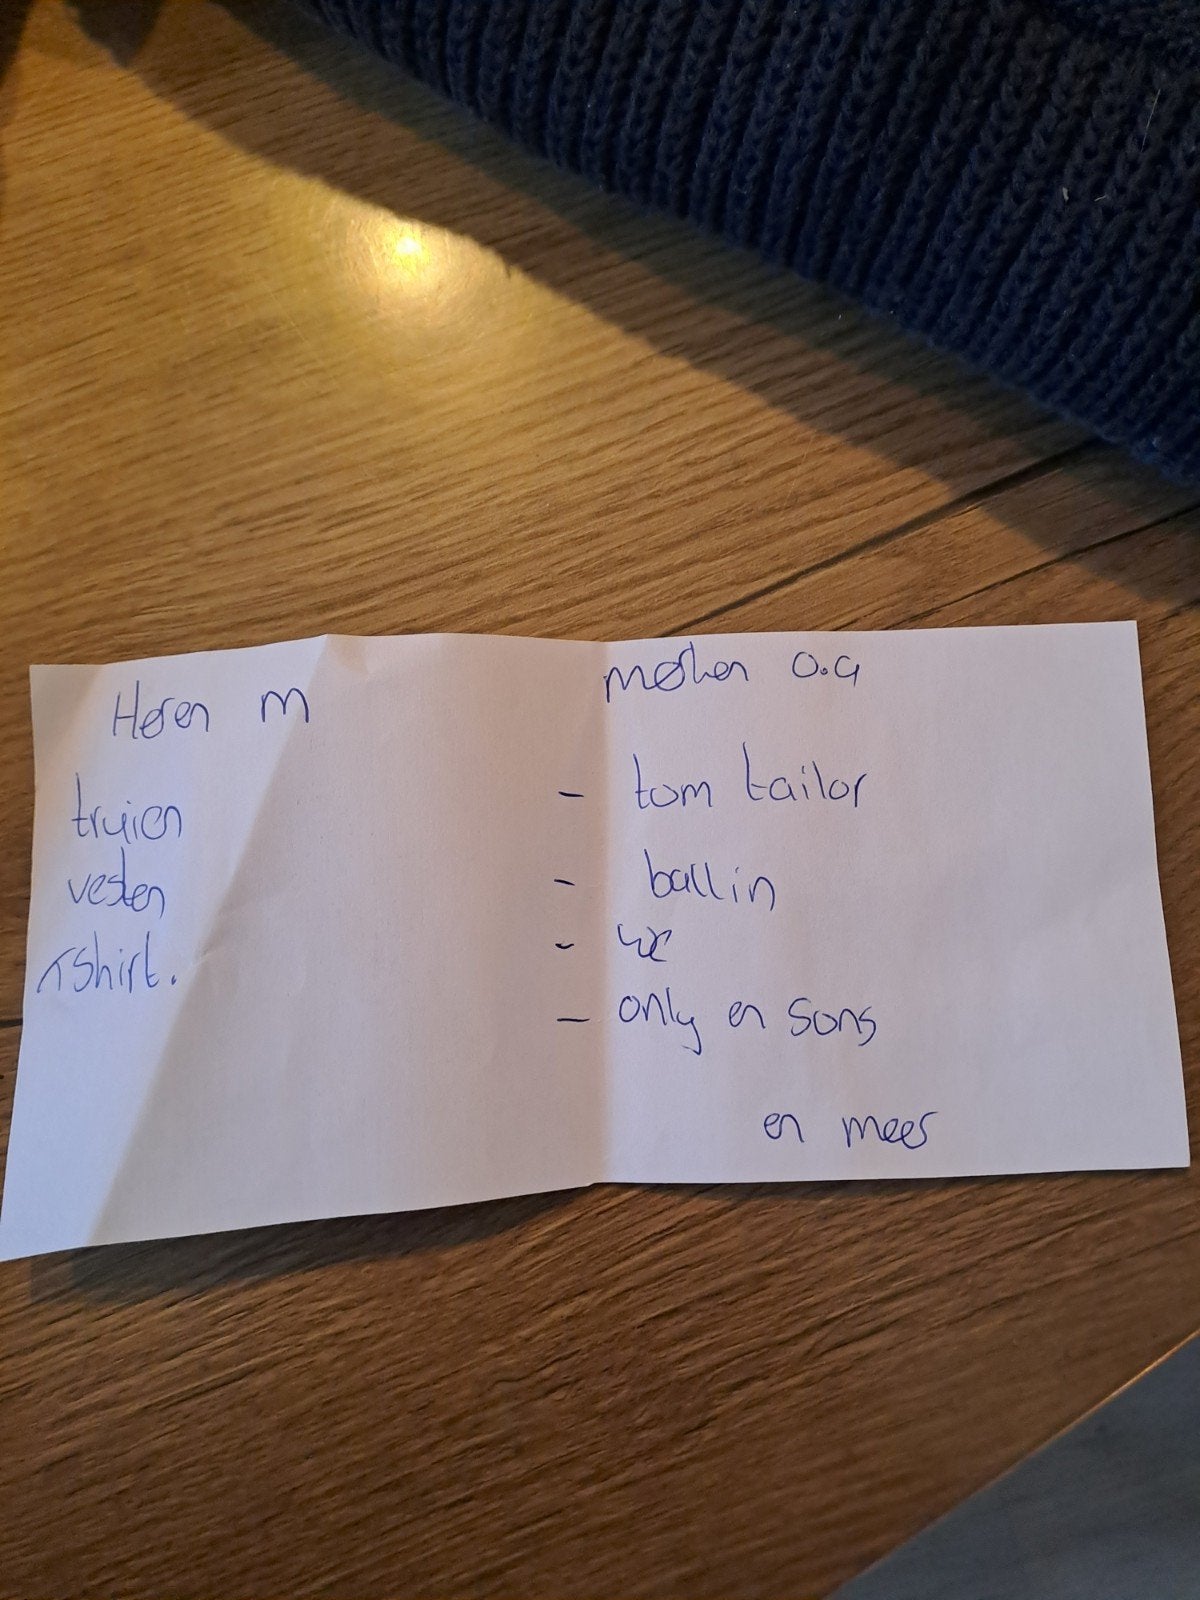 Heren M
truien
vesten
Tshirt.
merken o.a
- tom tailor
- ballin
- we
- only en sons
en meer